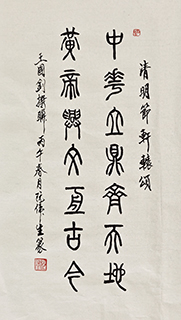 清明節軒轅頌
中華立鼎齊天地
黃帝興文亙古今
王國釗撰聯 丙午春月 阮偉生篆